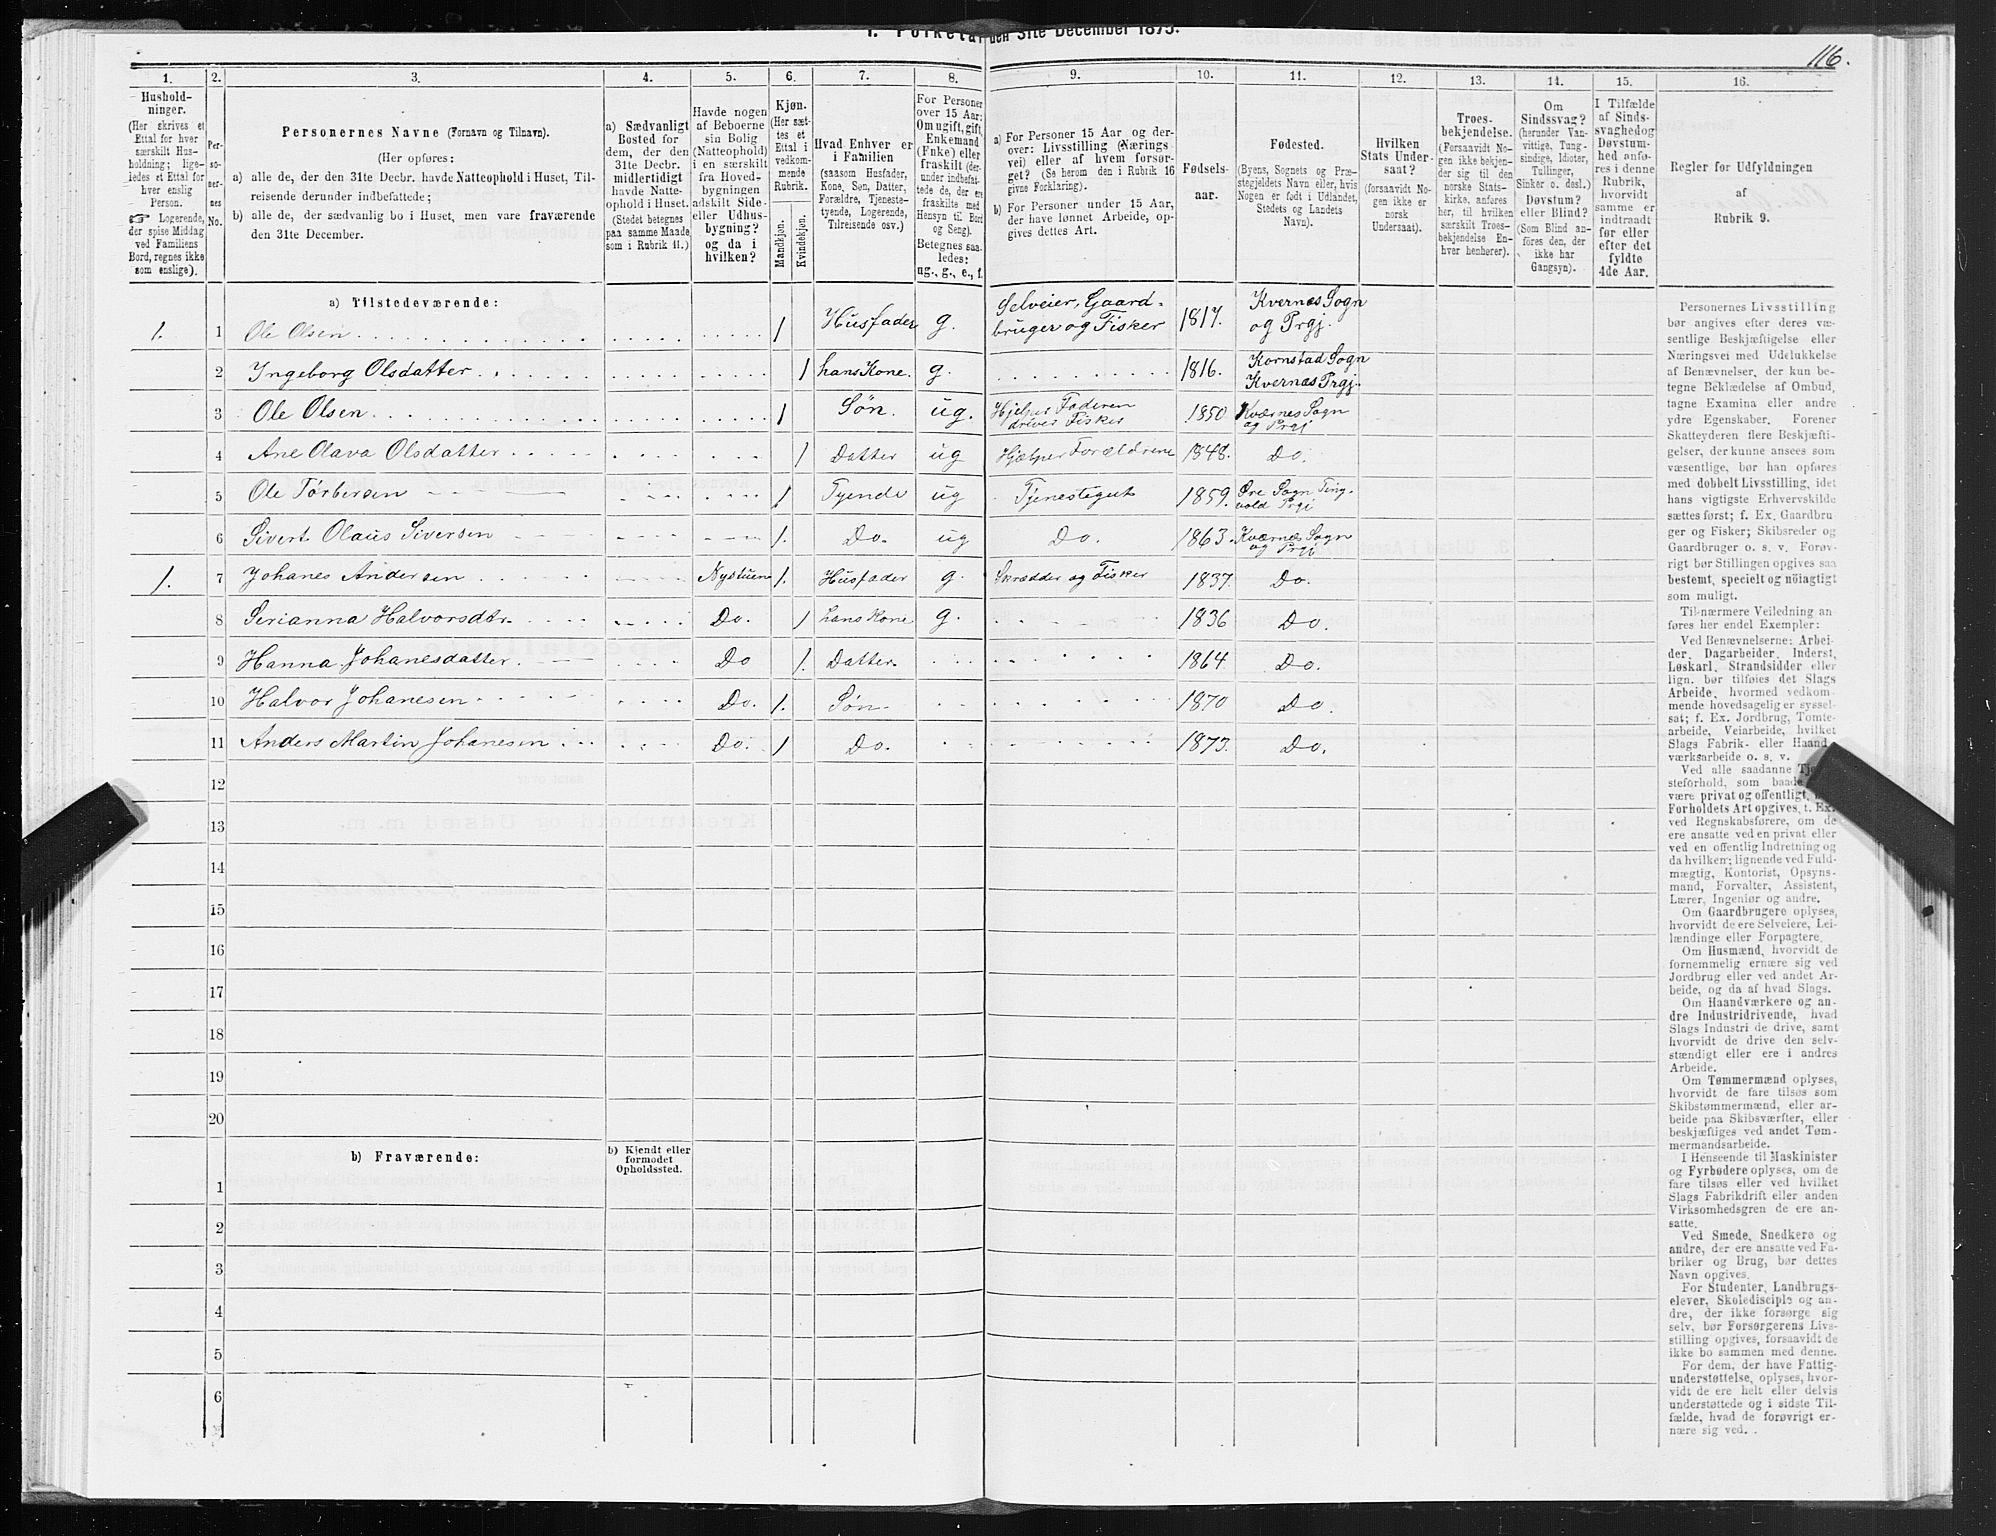 1. Folketal den 31te December 1875.
116.
1. 2. 3. 4. 5. 6. 7. 8. 9. 10. 11. 12. 13. 14. 15. 16.
Hushold-
ninger.
(Her skrives et
Ettal for hver
særskilt Hus-
holdning; lige-
ledes et Ettal for
hver enslig
Person.
☞ Logerende,
der spise Middag
ved Familiens
Bord, regnes ikke
som enslige).
Per-
so-
ner-
nes
No.
Personernes Navne (Fornavn og Tilnavn).
(Her opføres:
a) alle de, der den 31te Decbr. havde Natteophold i Huset, Til-
reisende derunder indbefattede;
b) alle de, der sædvanlig bo i Huset, men vare fraværende
den 31te December.
a) Sædvanligt
Bosted for
dem, der den
31te Decbr.
midlertidigt
havde Natte-
ophold i Huset.
(Stedet betegnes
paa samme Maade
som i Rubrik 11.)
Havde nogen
af Beboerne
sin Bolig
(Natteophold)
i en særskilt
fra Hoved-
bygningen
adskilt Side-
eller Udhus-
bygning?
og da i
hvilken?
Kjøn.
(Her sæt-
tes et
Ettal i
vedkom-
mende
Rubrik.
Mandkjøn.
Kvindekjøn.
Hvad Enhver er
i Familien
(saasom Husfader,
Kone, Søn, Datter,
Forældre, Tjeneste-
tyende, Logerende,
Tilreisende osv.)
For Personer
over 15 Aar:
Om ugift, gift,
Enkemand
(Enke) eller
fraskilt (der-
under indbefat-
tede de, der ere
fraskilte med
Hensyn til Bord
og Seng).
Betegnes saa-
ledes:
ug., g., e., f.
a) For Personer 15 Aar og der-
over: Livsstilling (Nærings-
vei) eller af hvem forsør-
get? (Se herom den i Rubrik 16
givne Forklaring).
b) For Personer under 15 Aar,
der have lønnet Arbeide, op-
gives dettes Art.
Fødsels-
aar.
Fødested.
(Byens, Sognets og Præ-
stegjeldets Navn eller, hvis
Nogen er født i Udlandet,
Stedets og Landets
Navn).
Hvilken
Stats Under-
saat?
(forsaavidt No-
gen ikke er
norsk
Undersaat).
Troes-
bekjendelse.
(Forsaavidt No-
gen ikke bekjen-
der sig til den
norske Stats-
kirke, anføres
her, til hvilken
særskilt Troes-
bekjendelse En-
hver henhører).
Om
Sindssvag?
(herunder Van-
vittige, Tung-
sindige, Idioter,
Tullinger,
Sinker o. desl.)
Døvstum?
eller Blind?
(Som Blind an-
føres den, der
ikke har
Gangsyn).
I Tilfælde
af Sinds-
svaghed og
Døvstum-
hed anfø-
res i denne
Rubrik,
hvorvidt
samme er
indtraadt
før eller
efter det
fyldte
4de Aar.
Regler for Udfyldningen
af
Rubrik 9.
a) Tilstedeværende:
1. 1 Ole Olsen 1 Husfader g. Selveier, Gaard-bruger og Fisker 1817. Kvernes Sogn og Prgj.
2 Ingeborg Olsdatter 1 hans Kone. g. 1816. Kornstad Sogn Kvernes Prgj.
3 Ole Olsen 1 Søn. ug. Hjelper Faderen driver Fisker 1850 Kværnes Sogn og Prgj
4 Ane Olava Olsdatter 1 Datter ug Hjælper Forældrene 1848. Do.
5 Ole Torbersen 1 Tyende ug Tjenestegut 1859. Øre Sogn Ting-vold Prgj
6 Sivert Olaus Siversen 1. Do. ug Do. 1863. Kværnes Sogn og Prgj
1. 7 Johanes Andersen Nystuen 1. Husfader g. Skrædder og Fisker 1837. Do.
8 Serianna Halvorsdtr. Do. 1 hans Kone g. 1836 Do.
9 Hanna Johanesdatter. Do 1. Datter. 1864. Do.
10 Halvor Johanesen Do. 1. Søn 1870 Do.
11 Anders Martin Johanesen Do. 1 Do. 1873. Do.
12
13
14
15
16
17
18
19
20
b) Fraværende:
b) Kjendt eller
formodet
Opholdssted.
1
2
3
4
5
6
Personernes Livsstilling
bør angives efter deres væ-
sentlige Beskjæftigelse eller
Næringsvei med Udelukkelse
af Benævnelser, der kun be-
tegne Beklædelse af Ombud,
tagne Examina eller andre
ydre Egenskaber. Forener
Skatteyderen flere Beskjæfti-
gelser, der kunne ansees som
væsentlige, bør han opføres
med dobbelt Livsstilling, idet
hans vigtigste Erhvervskilde
sættes først; f. Ex. Gaardbru-
ger og Fisker; Skibsreder og
Gaardbruger o. s. v. Forøv-
rigt bør Stillingen opgives saa
bestemt, specielt og nöiagtigt
som muligt.
Til nærmere Veiledning an-
føres her endel Exempler:
Ved Benævnelserne: Arbei-
der, Dagarbeider, Inderst,
Løskarl, Strandsidder eller
lign. bør tilføies det Slags
Arbeide, hvormed vedkom-
mende hovedsagelig er syssel-
sat; f. Ex. Jordbrug, Tomte-
arbeide, Veiarbeide, hvilket
Slags Fabrik- eller Haand-
værksarbeide o. s. v.
Ved alle saadanne
steforhold, som baade
være privat og offentligt,
Forholdets Art opgives, t. Ex.
ved Regnskabsførere, om de
ere ansatte ved en privat eller
ved en offentlig Indretning og
da hvilken; lignende ved Fuld-
mægtig, Kontorist, Opsyns-
mand, Forvalter, Assistent,
Lærer, Ingeniør og andre.
Om Gaardbrugere oplyses,
hvorvidt de ere Selveiere, Lei-
lændinge eller Forpagtere.
Om Husmænd, hvorvidt de
fornemmelig ernære sig ved
Jordbrug eller ved andet Ar-
beide, og da af hvad Slags.
Om Haandværkere og an-
dre Industridrivende, hvad
Slags Industri de drive, samt
hvorvidt de drive den selv-
stændigt eller ere i andres
Arbeide.
Om Tømmermænd oplyses,
hvorvidt de fare tilsøs som
Skibstømmermænd, eller ar-
beide paa Skibsværfter, eller
beskjæftiges ved andet Tøm-
mermandsarbeide.
I Henseende til Maskinister
og Fyrbødere oplyses, om de
fare tilsøs eller ved hvilket
Slags Fabrikdrift eller anden
Virksomhedsgren de ere an-
satte.
Ved Smede, Snedkere og
andre, der ere ansatte ved Fa-
briker og Brug, bør dettes
Navn opgives.
For Studenter, Landbrugs-
elever, Skoledisciple og an-
dre, der ikke forsørge sig
selv, bør Forsørgerens Livs-
stilling opgives, forsaavidt de
ikke bo sammen med denne.
For dem, der have Fattig-
understøttelse, oplyses, hvor-
vidt de ere helt eller delvis
understøttede og i sidste Til-
fælde, hvad de forøvrigt er-
nære sig ved.